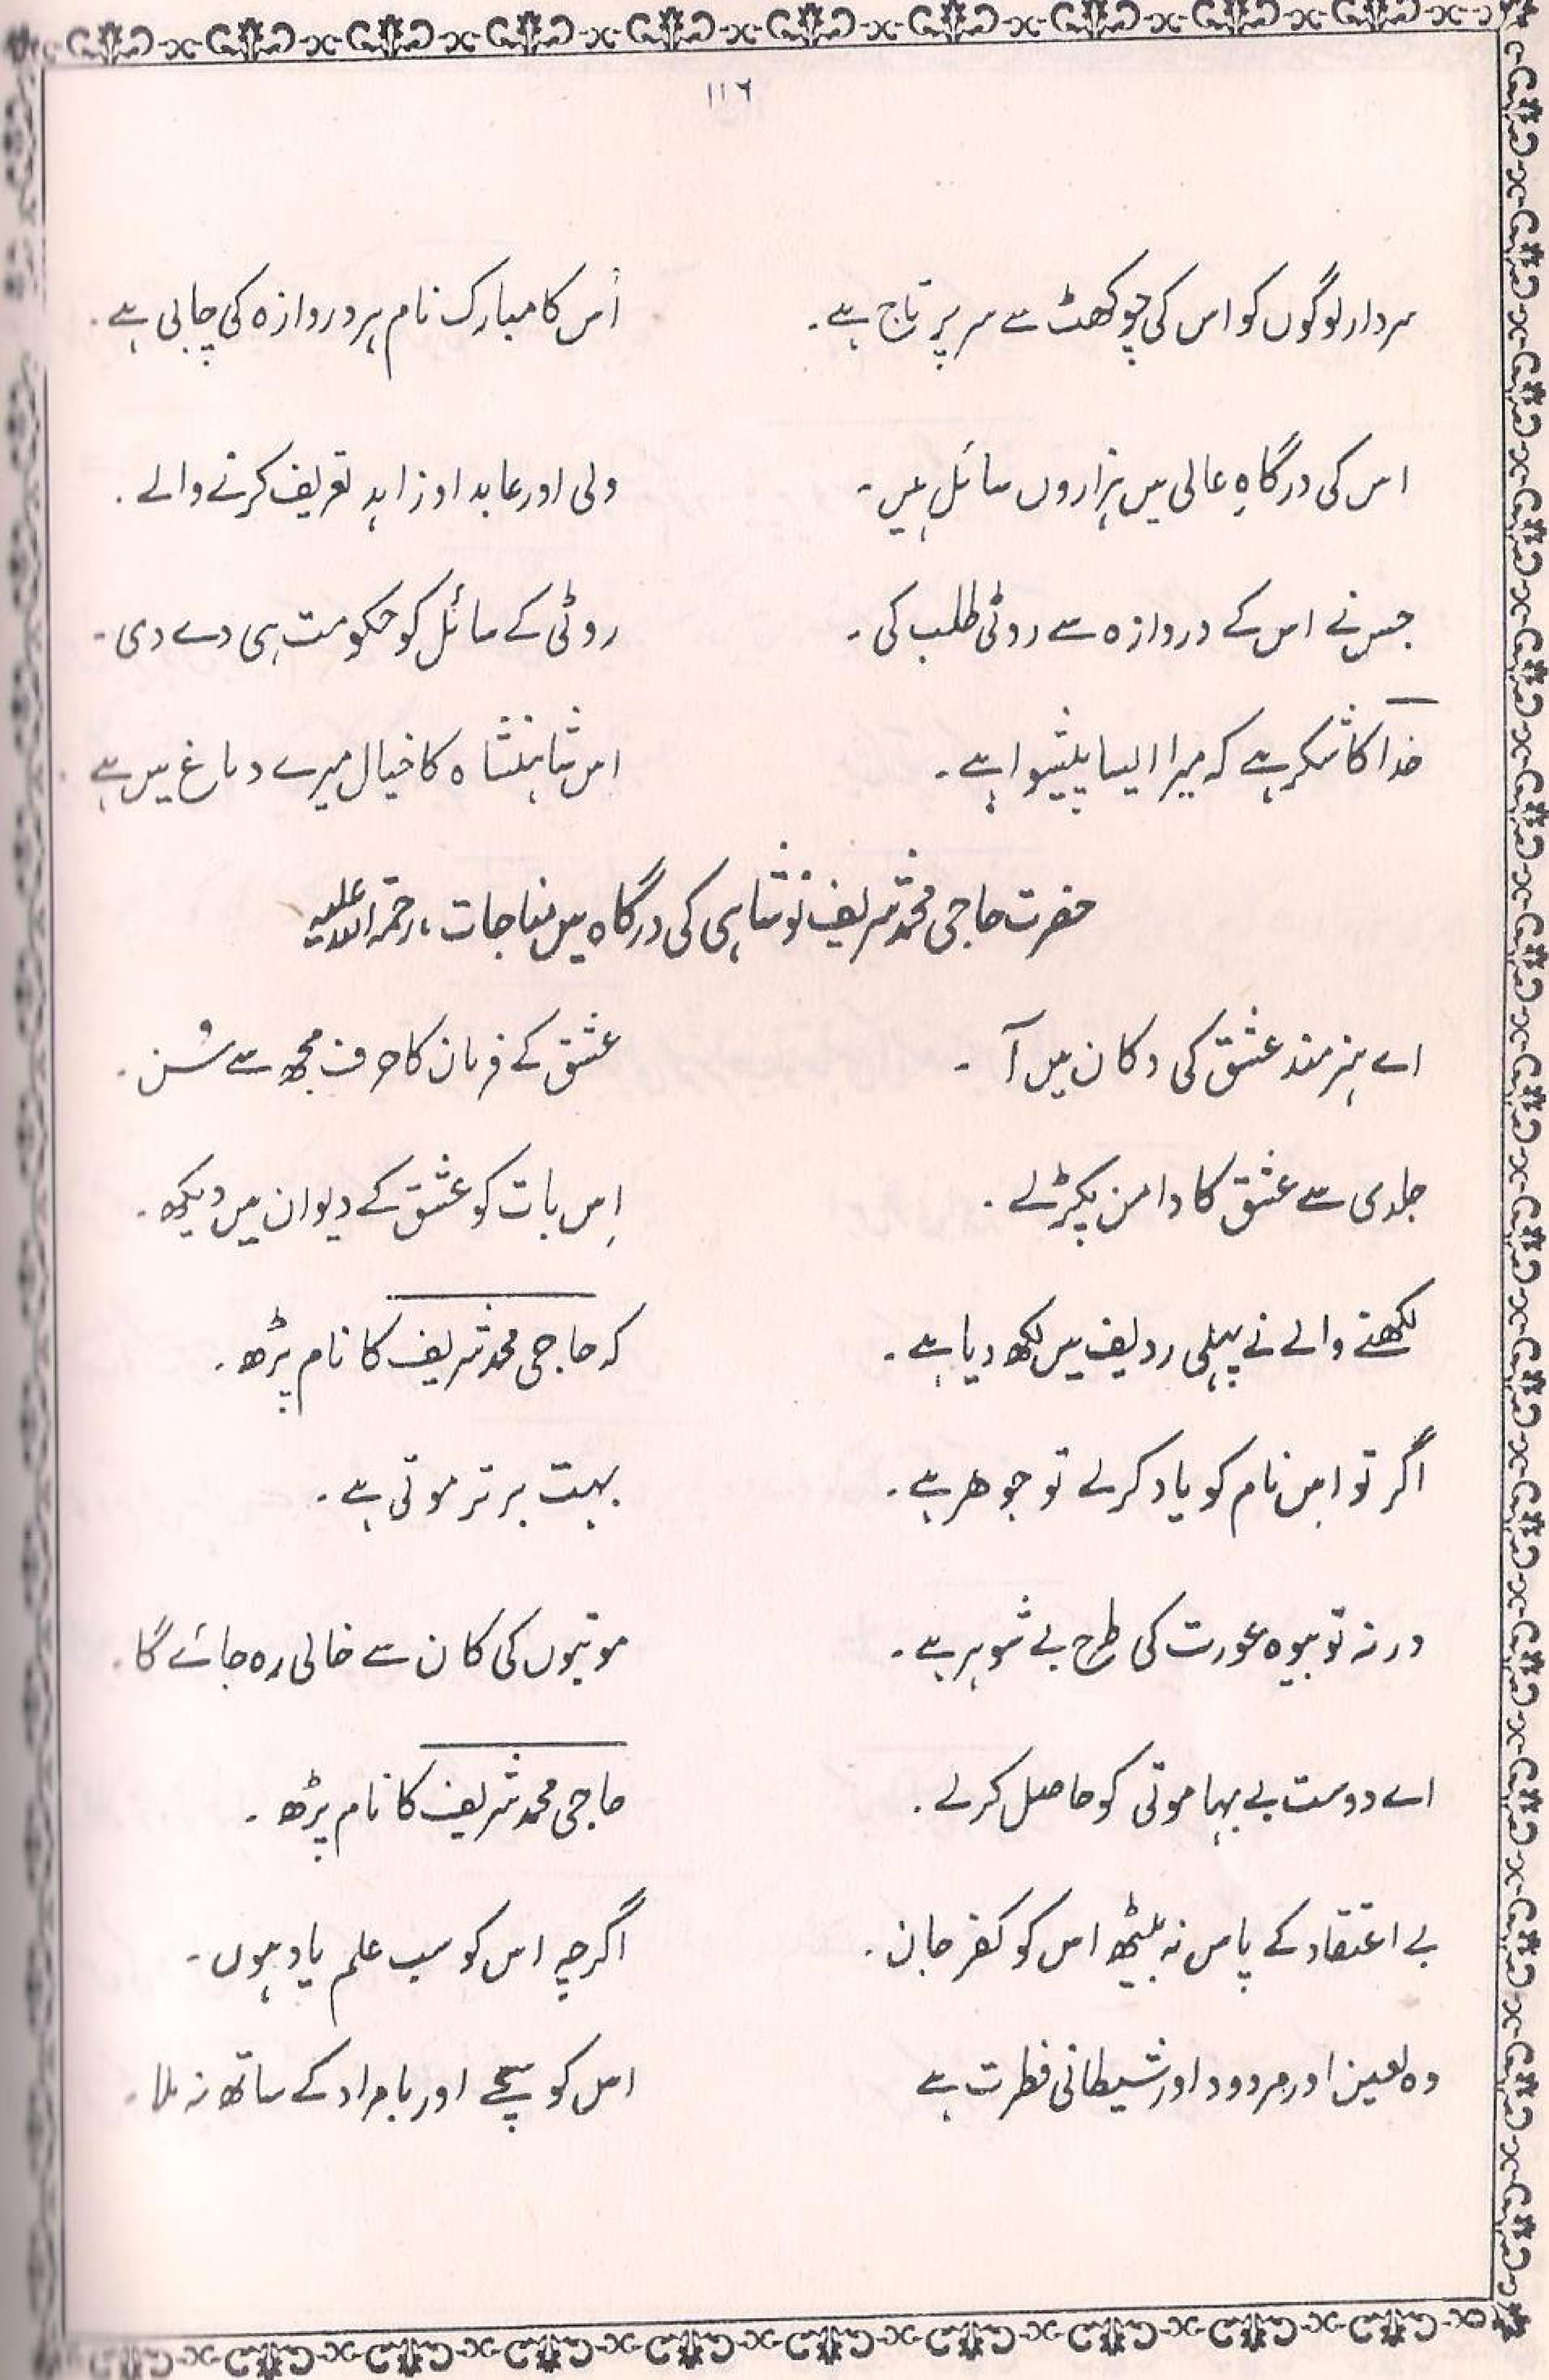 ۱۱۶
سردار لوگوں کو اس کی چوکھٹ سے سر پر تاج ہے۔ اُس کا مبارک نام ہر دروازہ کی چابی ہے۔
اس کی درگاہِ عالی میں ہزاروں سائل ہیں۔ ولی اور عابد اور زاہد تعریف کرنے والے۔
جس نے اس کے دروازہ سے روٹی طلب کی۔ روٹی کے سائل کو حکومت ہی دے دی۔
خدا کا شکر ہے کہ میرا ایسا پیشوا ہے۔ اس شاہنشاہ کا خیال میرے دماغ میں ہے۔
حضرت حاجی محمد شریف نوشاہی کی درگاہ میں مناجات، رحمۃ اللہ علیہ
اے ہنرمند عشق کی دکان میں آ۔ عشق کے فرمان کا حرف مجھ سے سُن۔
جلدی سے عشق کا دامن پکڑ لے۔ اِس بات کو عشق کے دیوان میں دیکھ۔
لکھنے والے نے پہلی ردیف میں لکھ دیا ہے۔ کہ حاجی محمد شریف کا نام پڑھ۔
اگر تو اس نام کو یاد کر لے تو جوھر ہے۔ بہت برتر موتی ہے۔
ورنہ تو بیوہ عورت کی طرح بے شوہر ہے۔ موتیوں کی کان سے خالی رہ جائے گا۔
اے دوست بے بہا موتی کو حاصل کر لے۔ حاجی محمد شریف کا نام پڑھ۔
بے اعتقاد کے پاس نہ بیٹھ اس کو کفر جان۔ اگرچہ اس کو سب علم یاد ہوں۔
وہ لعین اور مردود اور شیطانی فطرت ہے اس کو سچے اور بامراد کے ساتھ نہ ملا۔